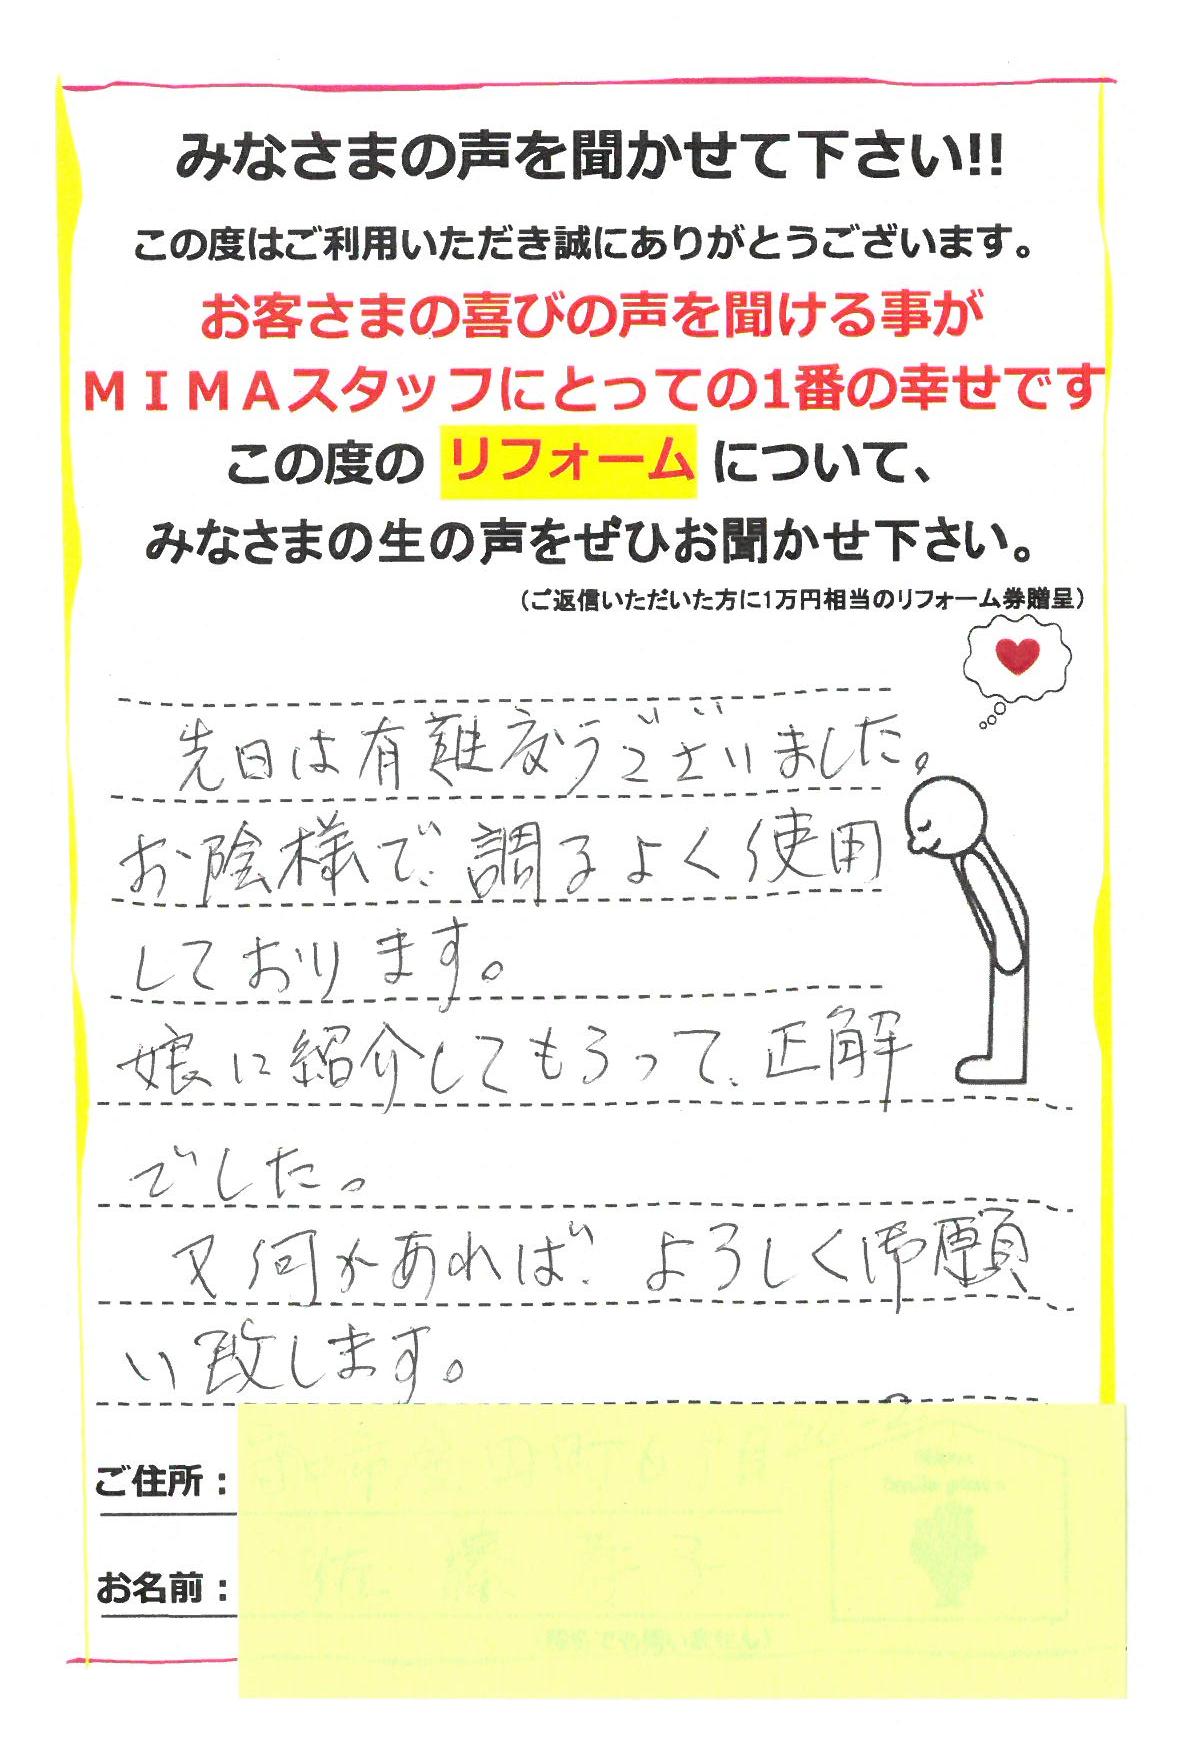 みなさまの声を聞かせて下さい!!
この度はご利用いただき誠にありがとうございます。
お客さまの喜びの声を聞ける事が
ＭＩＭＡスタッフにとっての1番の幸せです
この度の リフォーム について、
みなさまの生の声をぜひお聞かせ下さい。
（ご返信いただいた方に1万円相当のリフォーム券贈呈）
先日は有難度うございました。
お陰様で、調るよく使用
しております。
娘に紹介してもらって、正解
でした。
又何かあれば、よろしく御願
い致します。
ご住所：
お名前：